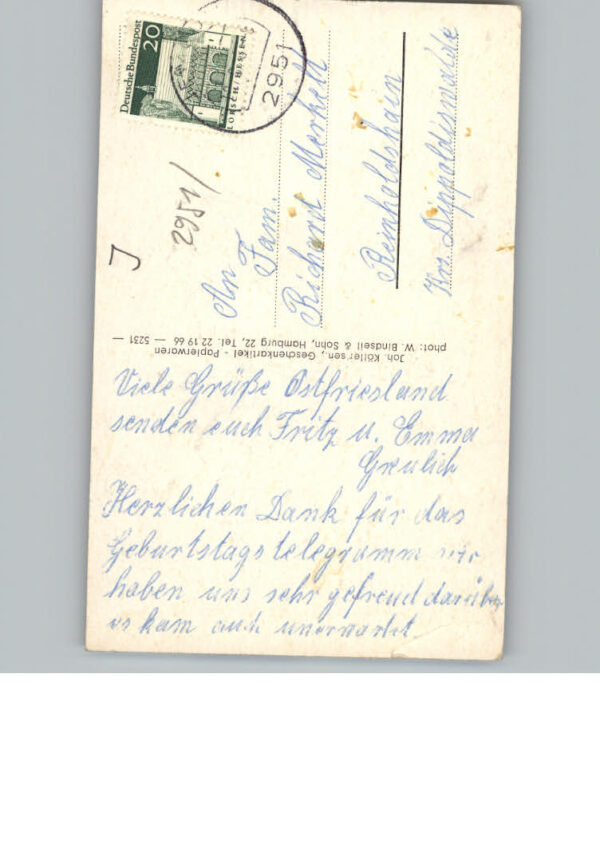 Deutsche Bundespost
20
LORSCH/HESSEN
2951
2951/
J
An
Fam.
Richard Merkell
Reinholdshain
Krs. Dippoldiswalde
Joh. Köllersen, Geschenkartikel - Papierwaren
phot: W. Bindseil & Sohn, Hamburg 22, Tel. 22 19 66 — 5231 —
Viele Grüße Ostfriesland
senden euch Fritz u. Emma
Greulich
Herzlichen Dank für das
Geburtstagstelegramm wir
haben uns sehr gefreud darüber
es kam auch unerwartet.